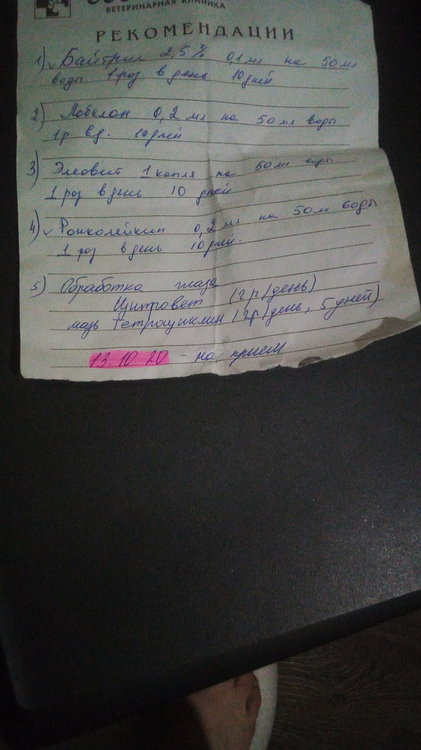 ВЕТЕРИНАРНАЯ КЛИНИКА
РЕКОМЕНДАЦИИ
1) Байтрил 2,5% 0,1 мл на 50 мл
воды 1 раз в день 10 дней
2) 0,2 мл на 50 мл воды
1 р в д. 10 дней
3) Элеовит 1 капля на 50 мл воды
1 раз в день 10 дней
4) Ронколейкин 0,2 мл на 50 м воды
1 раз в день 10 дны.
5) Обработка глаза
(2 р/день)
мазь Тетрациклин (2р/день, 5 дней)
13.10.20 - на прием